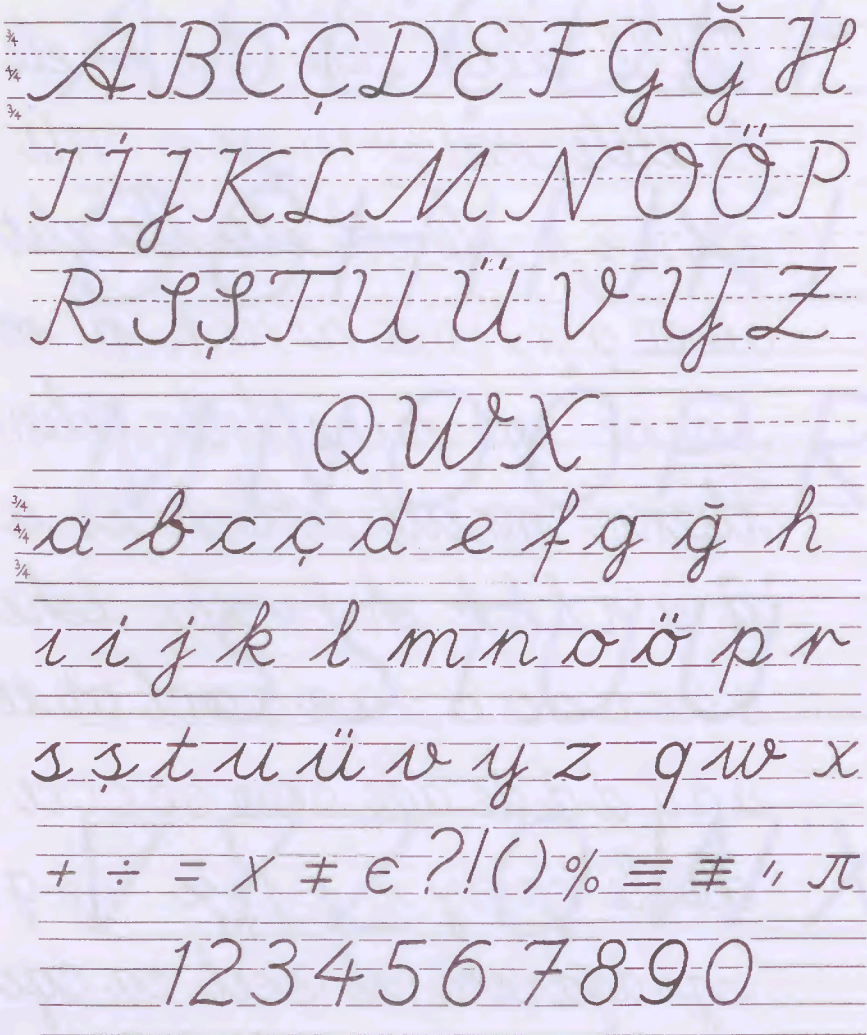 3/4
4/4
3/4
A B C Ç D E F G Ğ H
I İ J K L M N O Ö P
R S Ş T U Ü V Y Z
Q W X
3/4
4/4
3/4
a b c ç d e f g ğ h
ı i j k l m n o ö p r
s ş t u ü v y z q w x
+ ÷ = x ≠ ϵ ? ! ( ) % ≡ ≢ " π
1 2 3 4 5 6 7 8 9 0